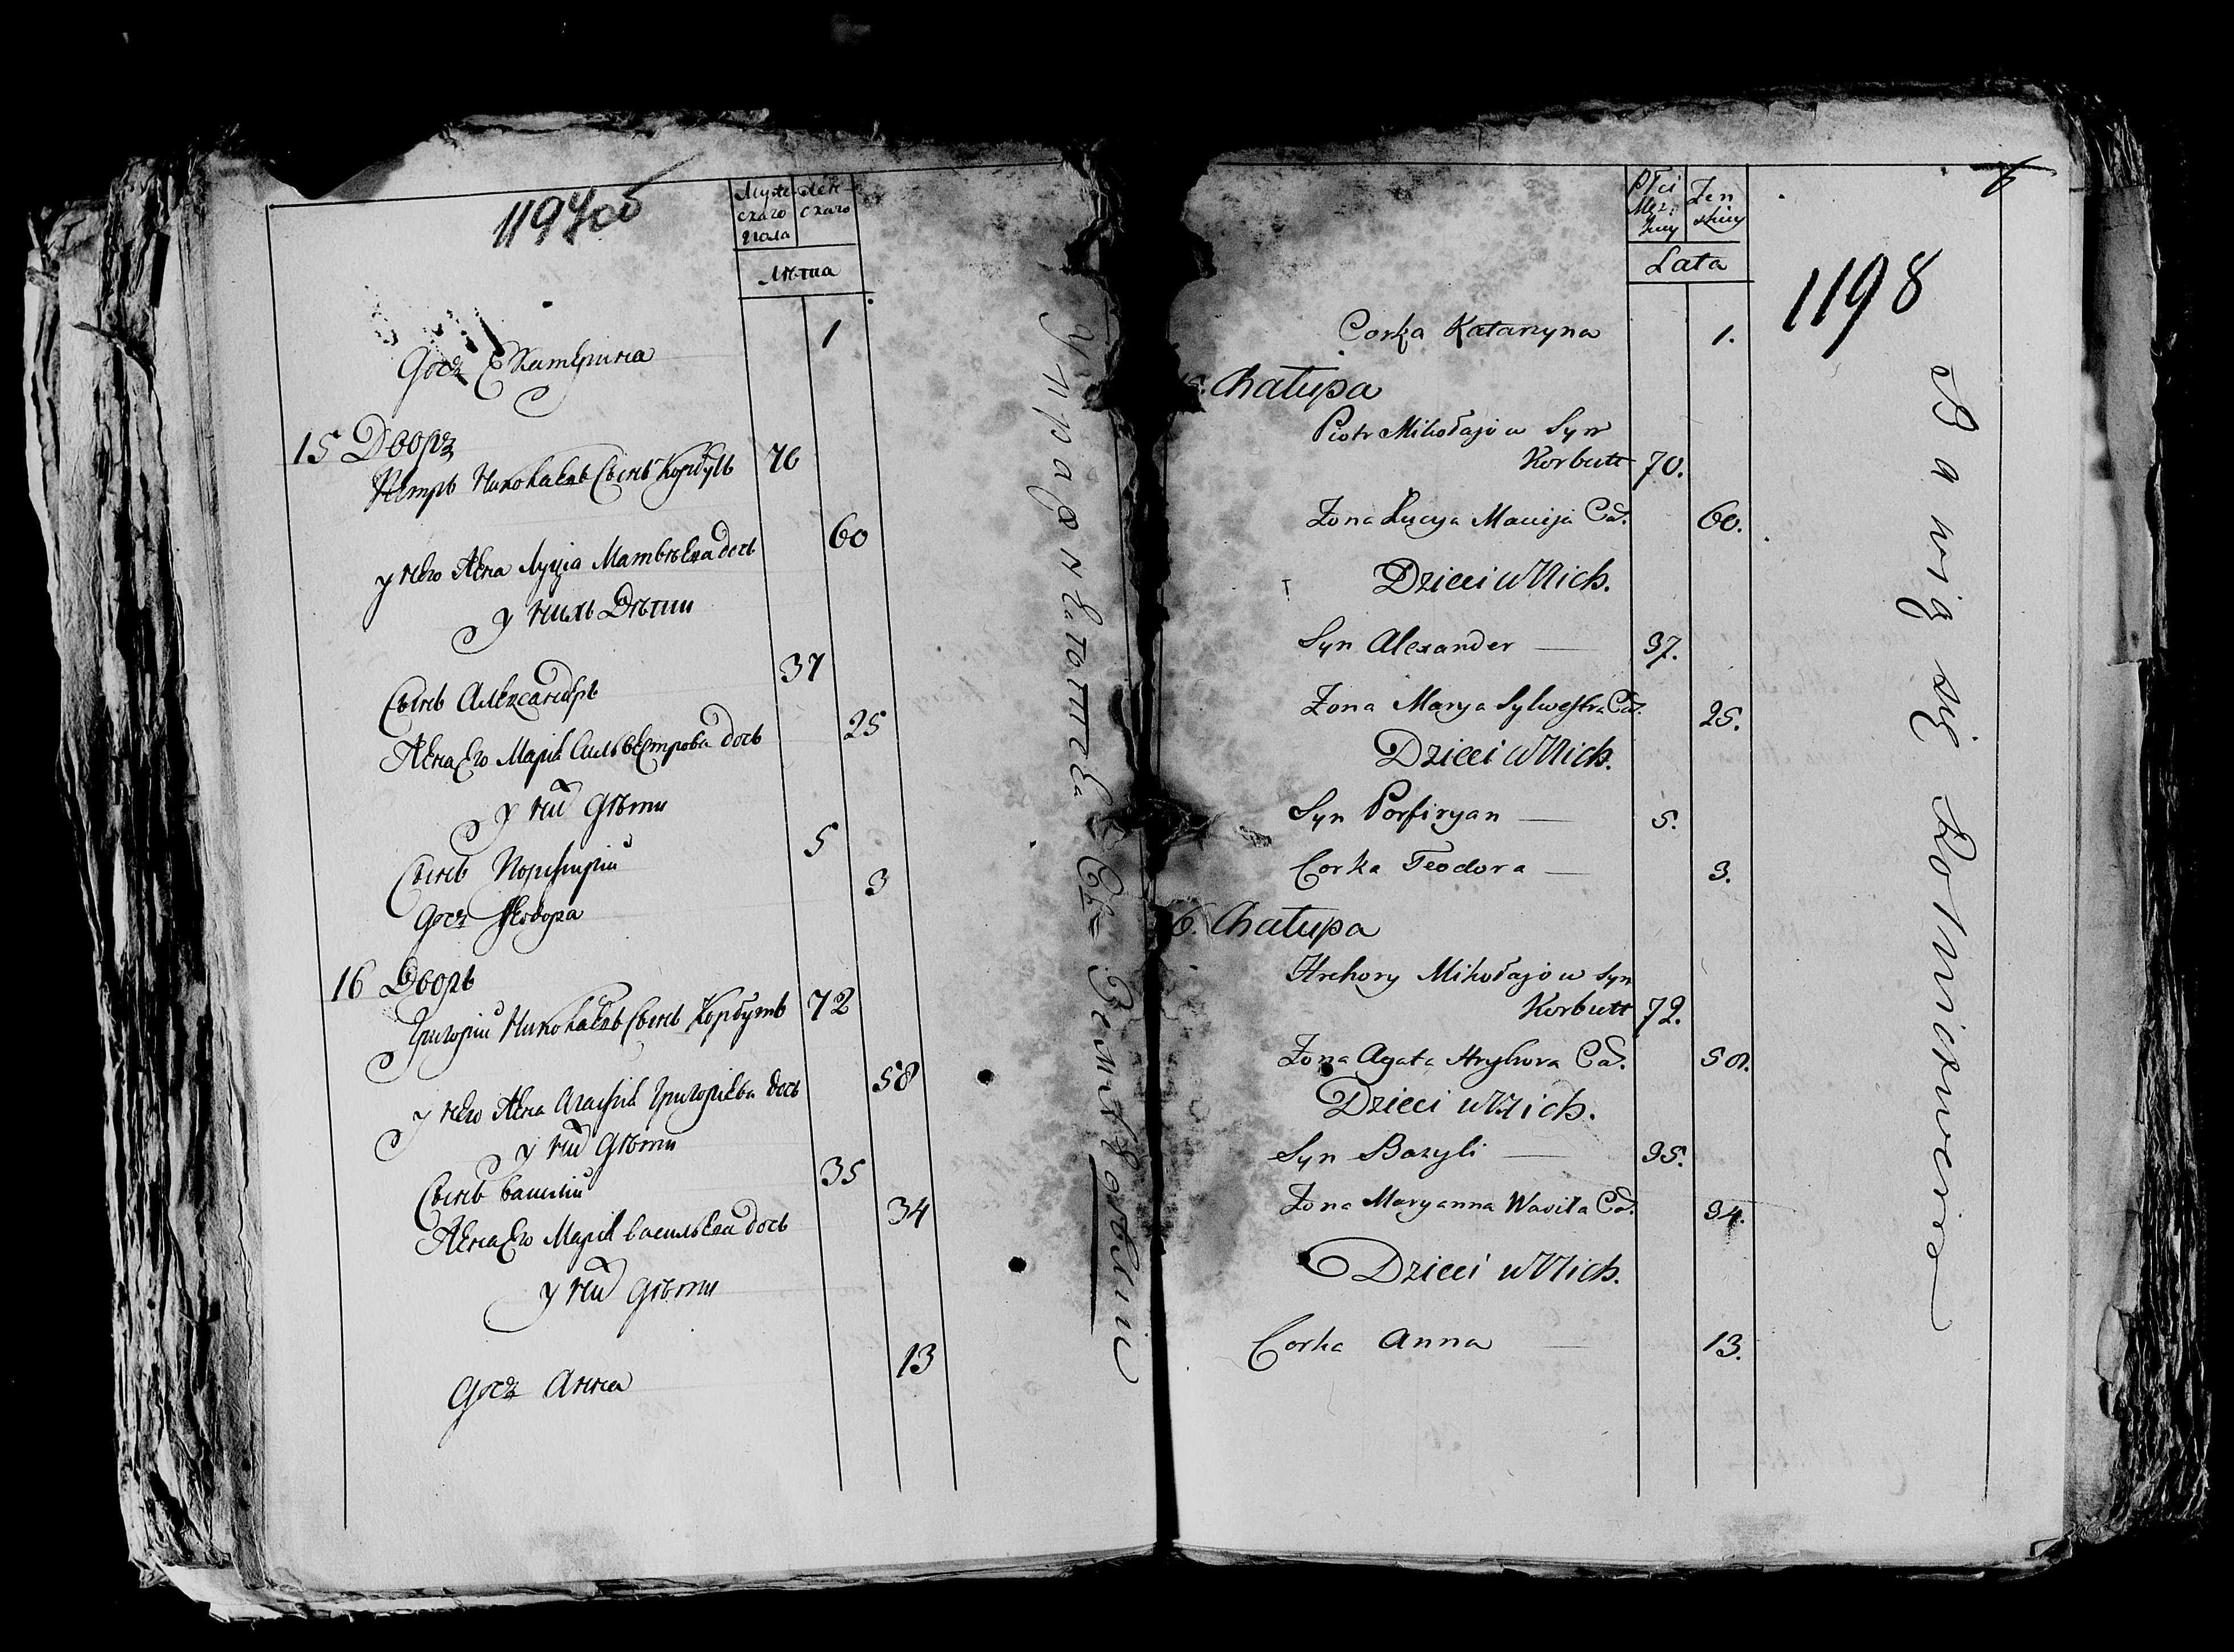 1197об
Муже-
скаго
пола
Жен-
скаго
Лѣта
Дочь Катерина 1
15 Дворъ
Петръ Николаевъ Сынъ Корбутъ 70
у него Жена Луція Матвѣева дочь 60
у нихъ Дѣти
Сынъ Александръ 37
Жена Его Марія Сильвестрова дочь 25
у них Дѣти
Сынъ Порфирій 5
Дочь Ѳеодора 3
16 Дворъ
Григорій Николаевъ Сынъ Корбутъ 72
у него Жена Агафія Григорьева дочь 58
у них Дѣти
Сынъ Василій 35
Жена Его Марія Васильева дочь 34
у них Дѣти
Дочь Анна 13
Płci
Męz.
Żen
skiey
Lata
1198
Corka Katarzyna 1.
Chałupa
Piotr Mikołajow Syn
Korbutt 70.
Żona Łucya Macieja Cór. 60.
Dzieci u Nich.
Syn Alexander 37.
Żona Marya Sylwestra Cór. 25.
Dzieci u Nich.
Syn Porfiryan 5.
Corka Teodora 3.
6. Chałupa
Hrehory Mikołajow Syn
Korbutt 72.
Żona Agata Hryhora Cór. 58.
Dzieci u Nich.
Syn Bazyli 35.
Żona Maryanna Wasila Cór. 34.
Dzieci u Nich.
Corka Anna 13.